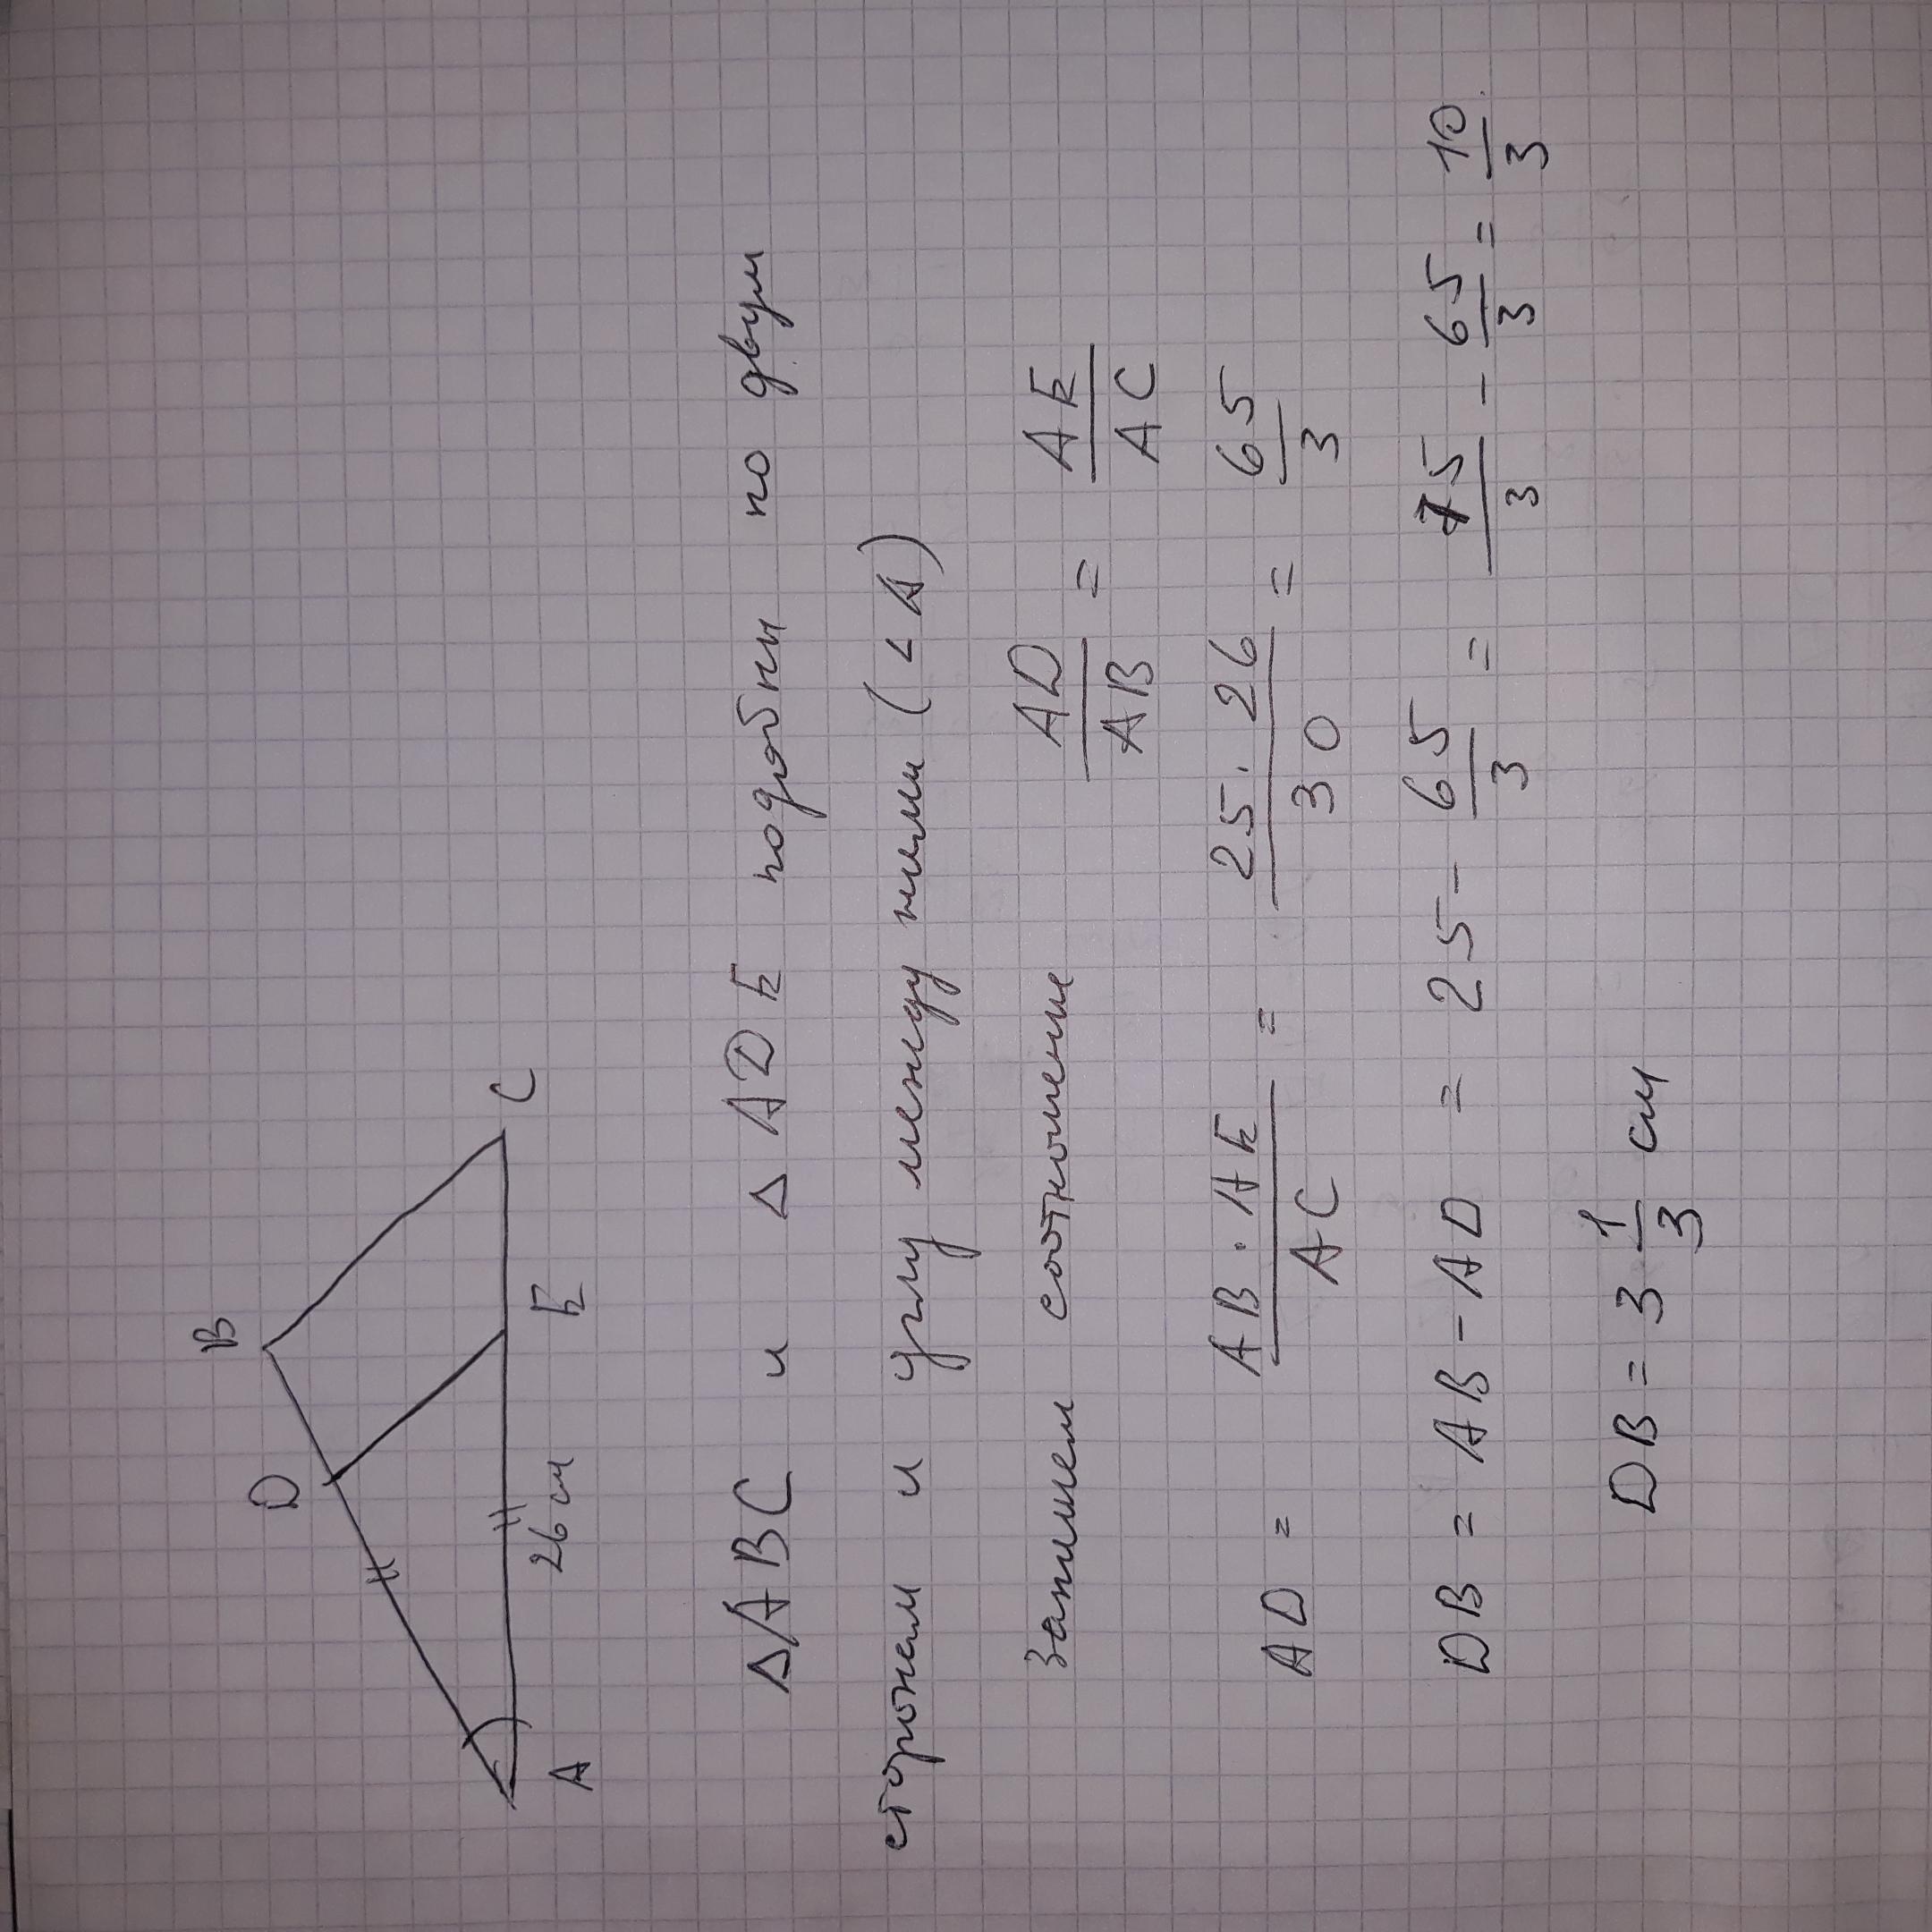 B
D
A
26 см
E
C
△ABC и △ADE подобны по двум
сторонам и углу между ними (∠A)
Запишем соотношение AD/AB = AE/AC
AD = AB · AE/AC = 25 · 26/30 = 65/3
DB = AB - AD = 25 - 65/3 = 75/3 - 65/3 = 10/3
DB = 3 1/3 см